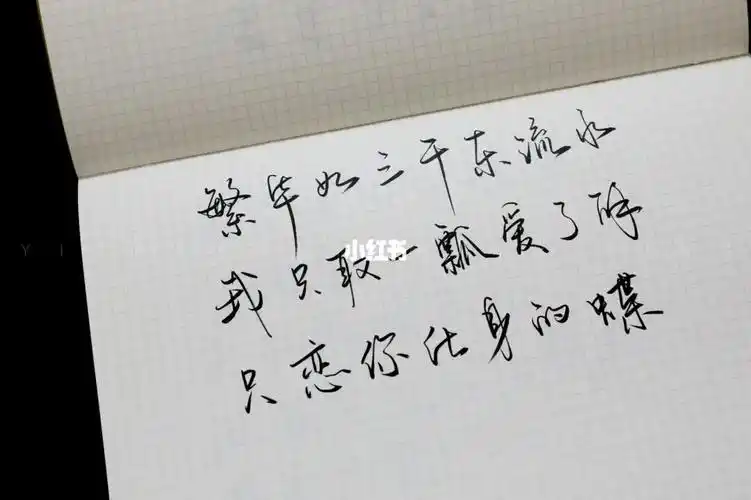 繁华如三千东流水
我只取一瓢爱了解
只恋你化身的蝶
小红书